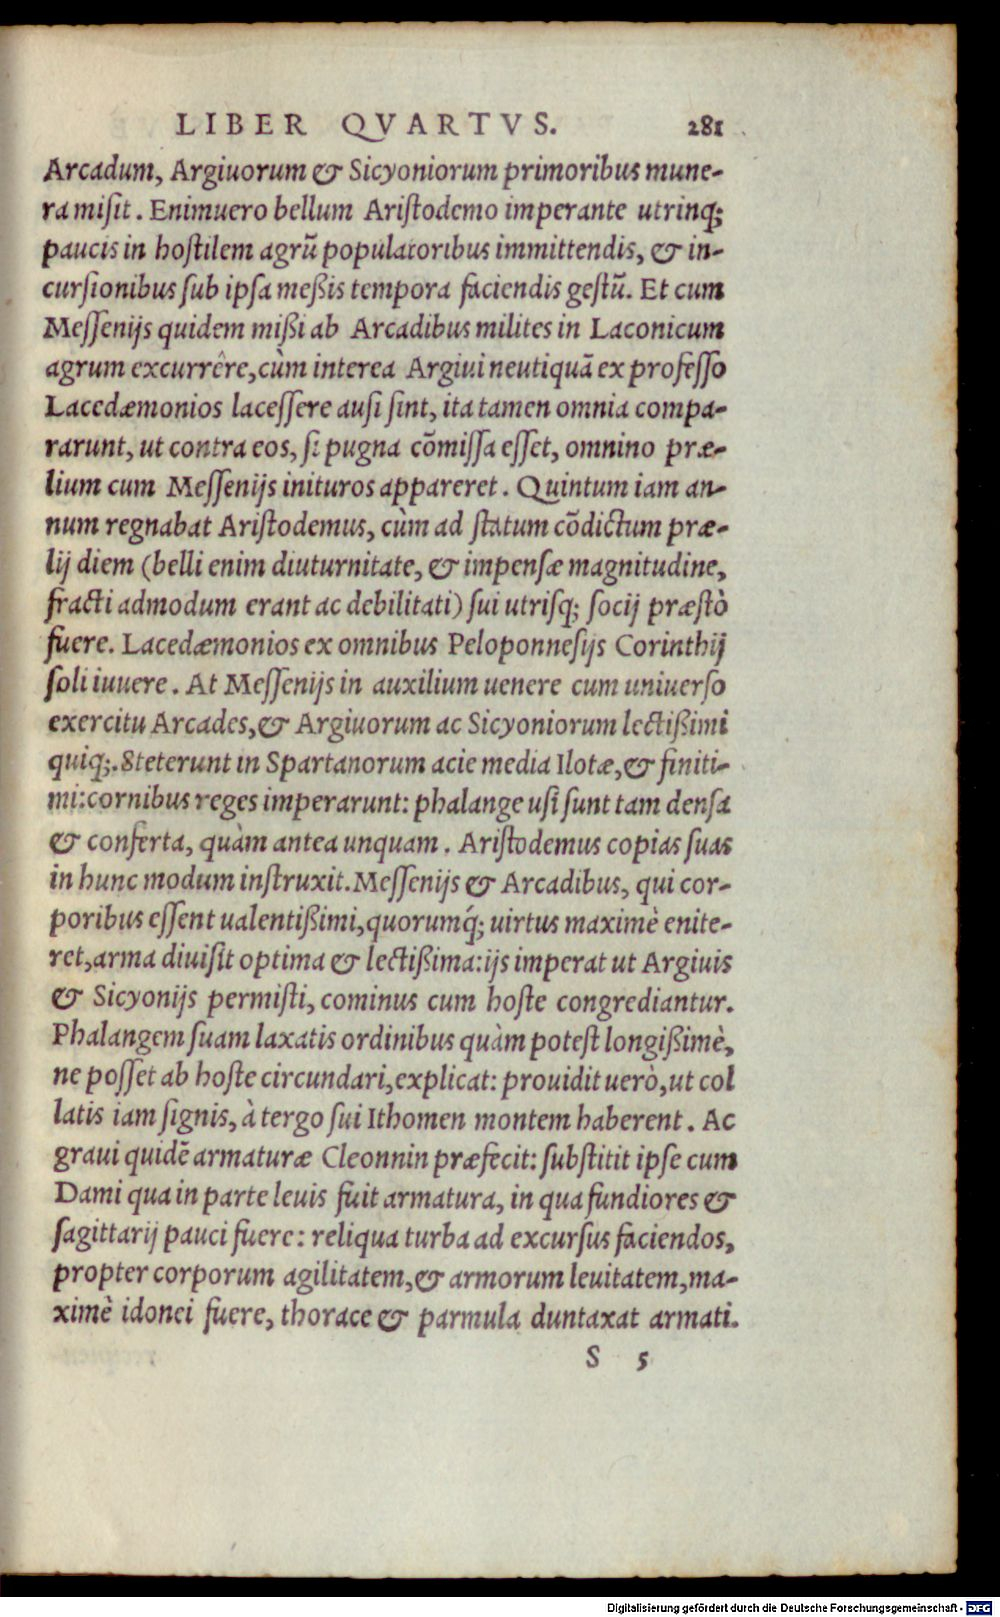 LIBER QVARTVS. 281
Arcadum, Argiuorum & Sicyoniorum primoribus mune-
ra misit. Enimuero bellum Aristodemo imperante utrinq;
paucis in hostilem agrũ populatoribus immittendis, & in-
cursionibus sub ipsa meßis tempora faciendis gestũ. Et cum
Messenijs quidem mißi ab Arcadibus milites in Laconicum
agrum excurrêre, cùm interea Argiui neutiquã ex professo
Lacedæmonios lacessere ausi sint, ita tamen omnia compa-
rarunt, ut contra eos, si pugna cõmissa esset, omnino præ-
lium cum Messenijs inituros appareret. Quintum iam an-
num regnabat Aristodemus, cùm ad statum cõdictum præ-
lij diem (belli enim diuturnitate, & impensæ magnitudine,
fracti admodum erant ac debilitati) sui utrisq; socij præstò
fuere. Lacedæmonios ex omnibus Peloponnesijs Corinthij
soli iuuere. At Messenijs in auxilium uenere cum uniuerso
exercitu Arcades, & Argiuorum ac Sicyoniorum lectißimi
quiq;. Steterunt in Spartanorum acie media Ilotæ, & finiti-
mi: cornibus reges imperarunt: phalange usi sunt tam densa
& conferta, quàm antea unquam. Aristodemus copias suas
in hunc modum instruxit. Messenijs & Arcadibus, qui cor-
poribus essent ualentißimi, quorumq́; uirtus maximè enite-
ret, arma diuisit optima & lectißima: ijs imperat ut Argiuis
& Sicyonijs permisti, cominus cum hoste congrediantur.
Phalangem suam laxatis ordinibus quàm potest longißimè,
ne posset ab hoste circundari, explicat: prouidit uerò, ut col
latis iam signis, à tergo sui Ithomen montem haberent. Ac
graui quidẽ armaturæ Cleonnin præfecit: substitit ipse cum
Dami qua in parte leuis fuit armatura, in qua fundiores &
sagittarij pauci fuere: reliqua turba ad excursus faciendos,
propter corporum agilitatem, & armorum leuitatem, ma-
ximè idonei fuere, thorace & parmula duntaxat armati.
S 5
Digitalisierung gefördert durch die Deutsche Forschungsgemeinschaft - DFG